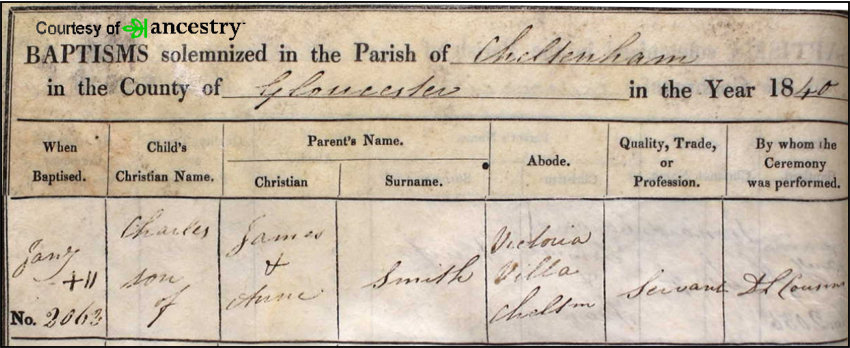 Courtesy of ancestry
BAPTISMS solemnized in the Parish of Cheltenham
in the County of Gloucester in the Year 1840
When Baptised.
Child's Christian Name.
Parent's Name.
Christian
Surname.
Abode.
Quality, Trade, or Profession.
By whom the Ceremony was performed.
Jany
11
No. 2062
Charles
son
of
James
&
Anne
Smith
Victoria
Villa
Cheltm
Servant